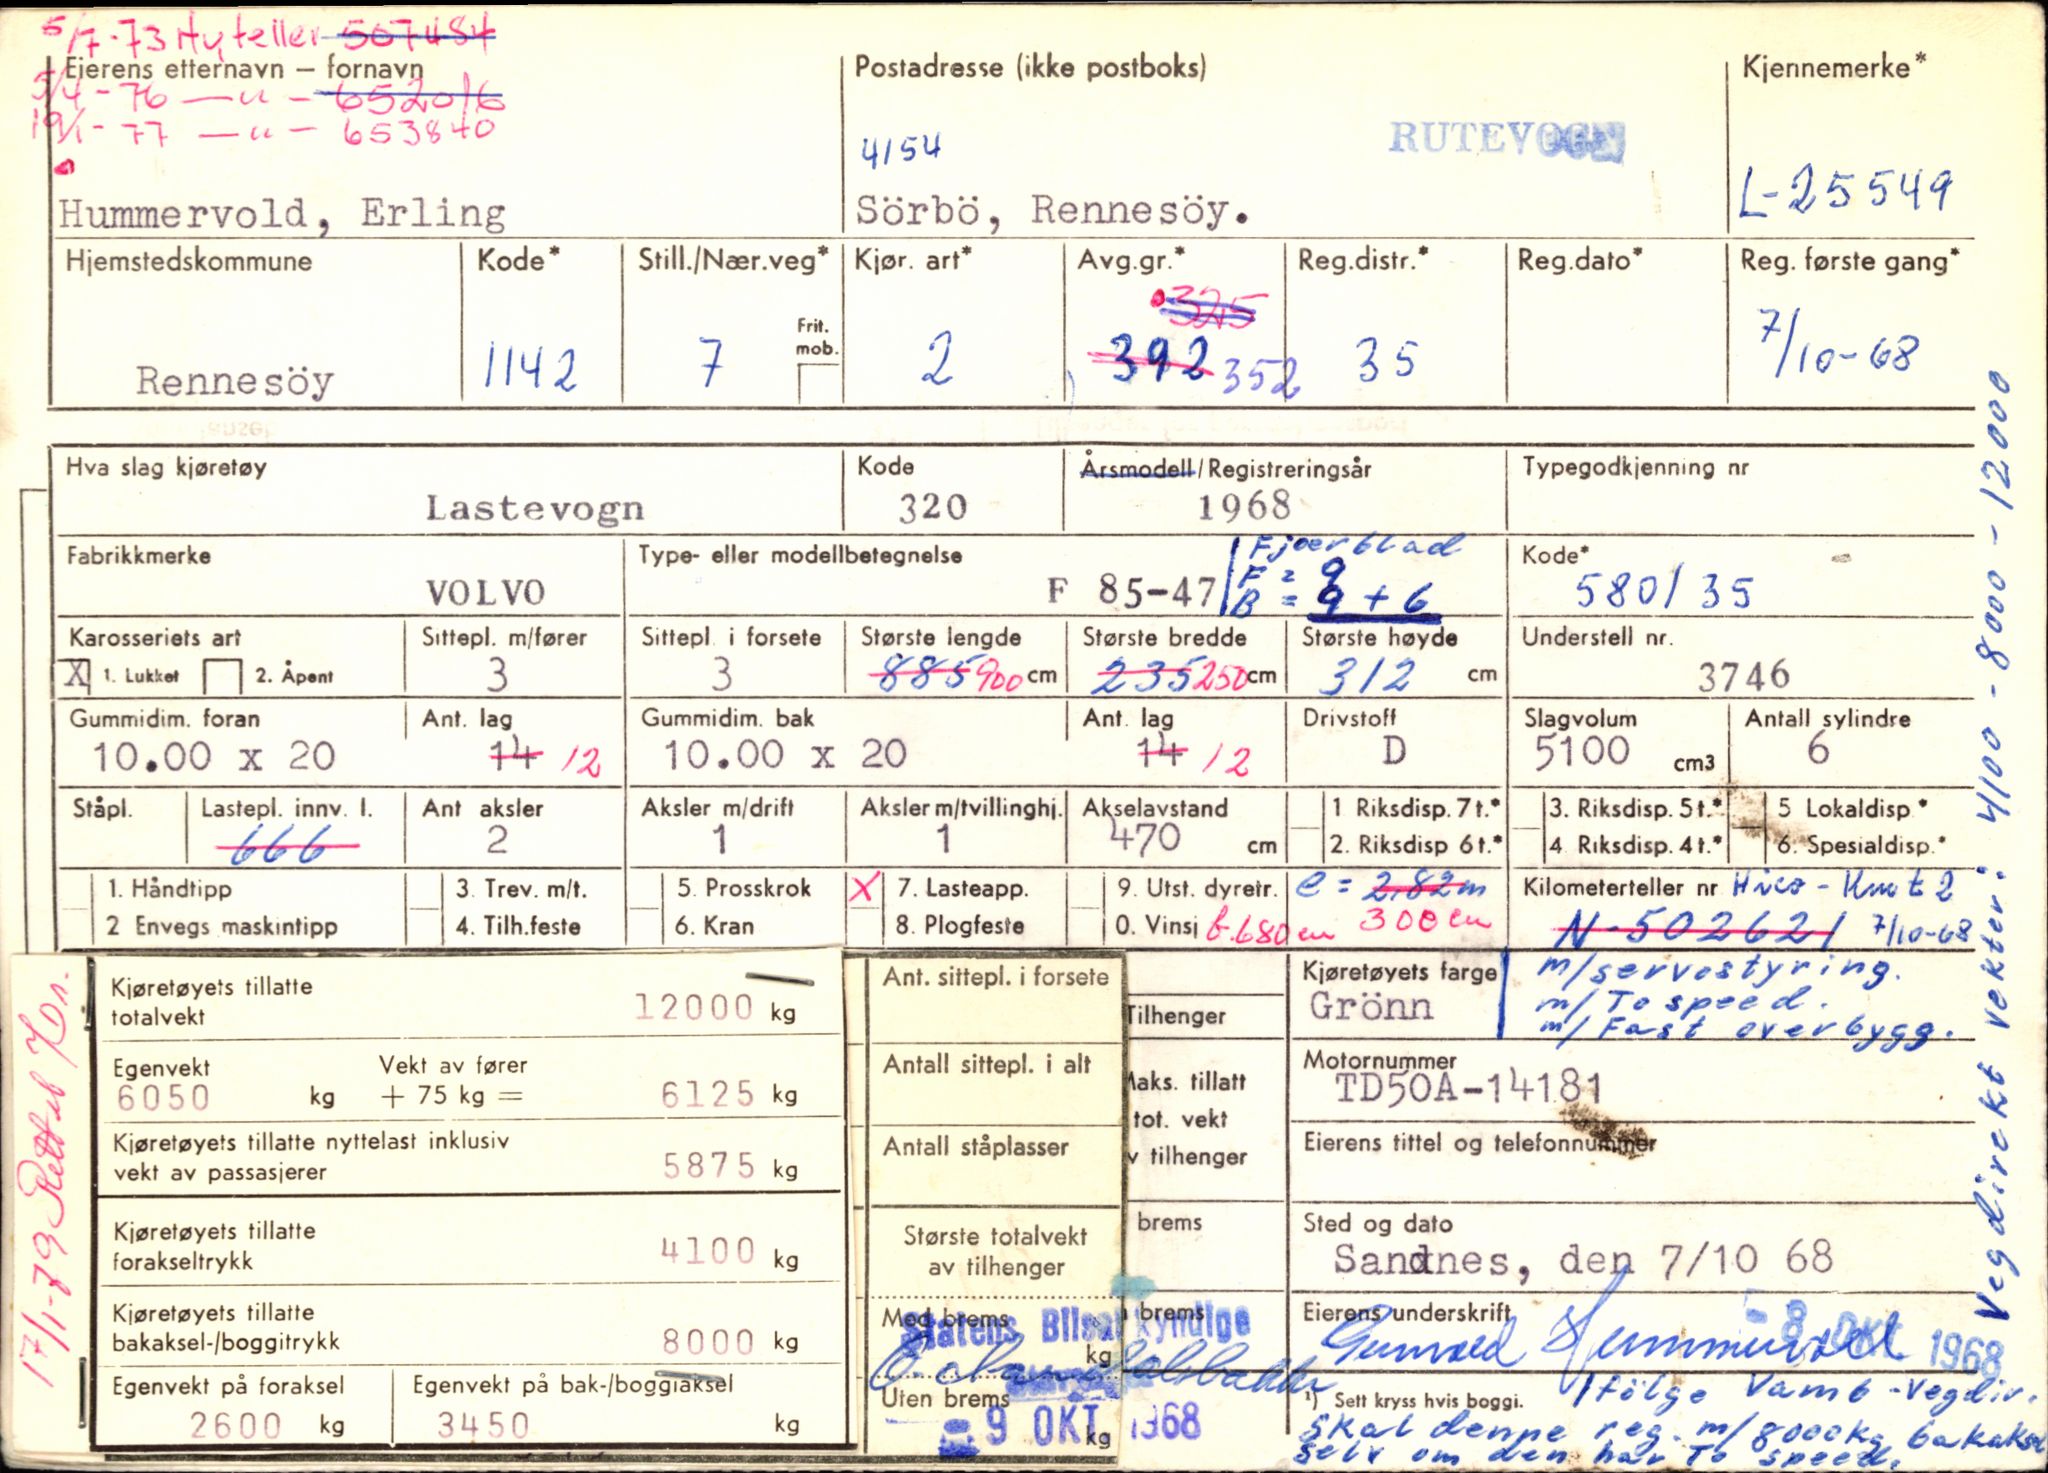 5/7-73 Ny teller 507484
Eierens etternavn – fornavn
5/4-76 — " — 652016
19/1-77 — " — 653840
Hummervold, Erling
Postadresse (ikke postboks)
4154
RUTEVOGN
Sörbö, Rennesöy.
Kjennemerke*
L-25549
Hjemstedskommune
Rennesöy
Kode*
1142
Still./Nær.veg*
7
Frit. mob.
Kjør. art*
2
Avg.gr.*
325
392 352
Reg.distr.*
35
Reg.dato*
Reg. første gang*
7/10-68
Hva slag kjøretøy
Lastevogn
Kode
320
Årsmodell/Registreringsår
1968
Typegodkjenning nr
Fabrikkmerke
VOLVO
Type- eller modellbetegnelse
F 85-47
Fjærblad
F = 9
B = 9 + 6
Kode*
580/35
Karosseriets art
X 1. Lukket 2. Åpent
Sittepl. m/fører
3
Sittepl. i forsete
3
Største lengde
885 900 cm
Største bredde
235 250 cm
Største høyde
312 cm
Understell nr.
3746
Gummidim. foran
10.00 x 20
Ant. lag
14 12
Gummidim. bak
10.00 x 20
Ant. lag
14 12
Drivstoff
D
Slagvolum
5100 cm3
Antall sylindre
6
Ståpl.
Lastepl. innv. l.
666
Ant aksler
2
Aksler m/drift
1
Aksler m/tvillinghj.
1
Akselavstand
470 cm
1 Riksdisp. 7t.*
2. Riksdisp 6t.*
3. Riksdisp. 5t.*
4. Riksdisp. 4t.*
5 Lokaldisp*
6. Spesialdisp.*
1. Håndtipp
2 Envegs maskintipp
3. Trev. m/t.
4. Tilh.feste
5. Prosskrok
6. Kran
X 7. Lasteapp.
8. Plogfeste
9. Utst. dyretr.
0. Vinsj
l = 2,82 m
b. 680 cm 300 cm
Kilometerteller nr Hico - Kmt 2
N-502621 7/10-68
Kjøretøyets tillatte
totalvekt 12000 kg
Egenvekt Vekt av fører
6050 kg + 75 kg = 6125 kg
Kjøretøyets tillatte nyttelast inklusiv
vekt av passasjerer 5875 kg
Kjøretøyets tillatte
forakseltrykk 4100 kg
Kjøretøyets tillatte
bakaksel-/boggitrykk 8000 kg
Egenvekt på foraksel
2600 kg
Egenvekt på bak-/boggiaksel
3450 kg
17/1-79 Rettet
Ant. sittepl. i forsete
Antall sittepl. i alt
Antall ståplasser
Største totalvekt
av tilhenger
Med brems
kg
Uten brems
kg
Statens Bilsakkyndige
9 OKT 1968
Tilhenger
Maks. tillatt
tot. vekt
v tilhenger
brems
brems
Kjøretøyets farge
Grönn
m/servostyring.
m/To speed.
m/Fast overbygg.
Motornummer
TD50A-14181
Eierens tittel og telefonnummer
Sted og dato
Sandnes, den 7/10 68
Eierens underskrift
Gunvald Hummervold
- 8 OKT 1968
¹) Sett kryss hvis boggi.
Ifölge Vamb - Vegdir.
skal denne reg. m/8000kg bakaksel
selv om den har To speed.
Vegdirekt vekter: 4100 - 8000 - 12000